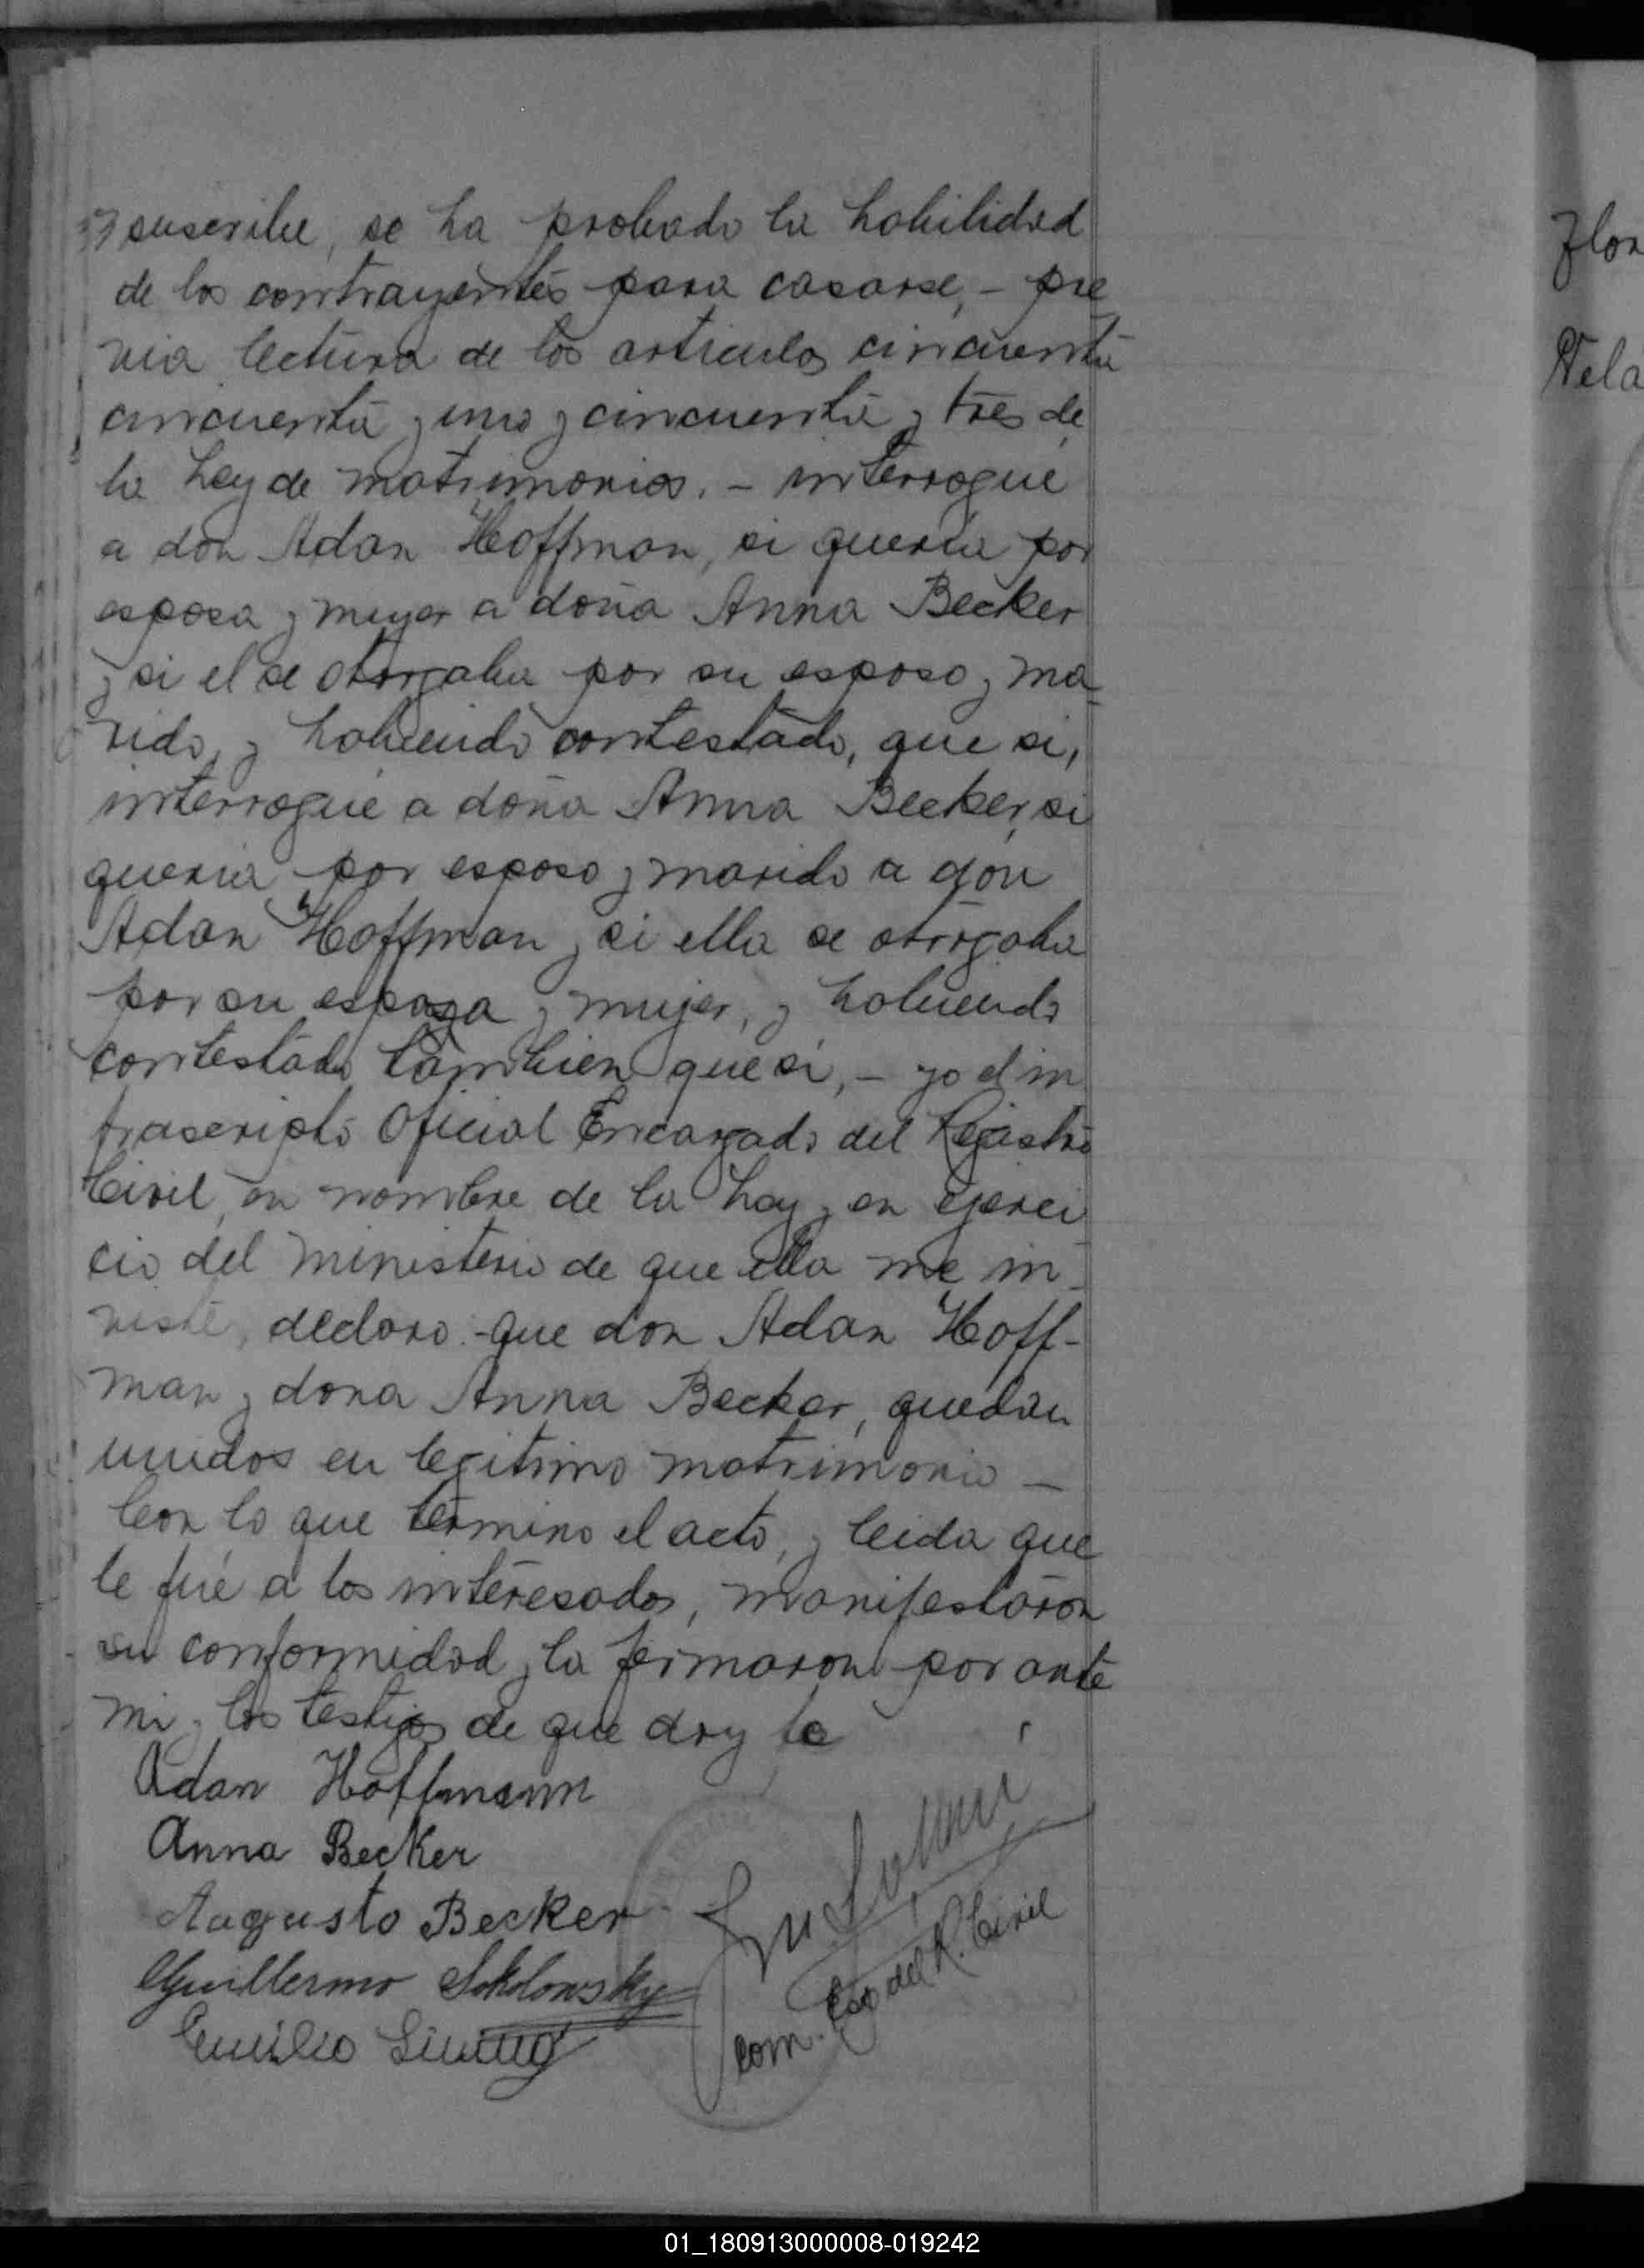 suscribe, se ha probado la habilidad
de los contrayentes para casarse, - pre
via lectura de los articulos cincuenta
cincuenta y uno y cincuenta y tres de
la Ley de matrimonios. - interrogué
a don Adan Hoffman, si queria por
esposa y mujer a doña Anna Becker
y si el se otorgaba por su esposo y ma-
rido, y habiendo contestado, que si,
interrogué a doña Anna Becker, si
queria por esposo y marido a don
Adan Hoffman y si ella se otorgaba
por su esposa y mujer, y habiendo
contestado tambien que si, - yo el in
frascripto Oficial Encargado del Registro
Civil, en nombre de la Ley y en ejerci
cio del ministerio de que ella me in-
viste, declaro: - que don Adan Hoff-
man y dona Anna Becker, quedan
unidos en legitimo matrimonio —
Con lo que termino el acto, y leida que
le fué a los interesados, manifestaron
su conformidad y la firmaron por ante
mi y los testigos de que doy fe
Adan Hoffmann
Anna Becker
Augusto Becker
Guillermo Sokolowsky
Emilio
Com. Esp del R. Civil
Flor
Vela
01_180913000008-019242